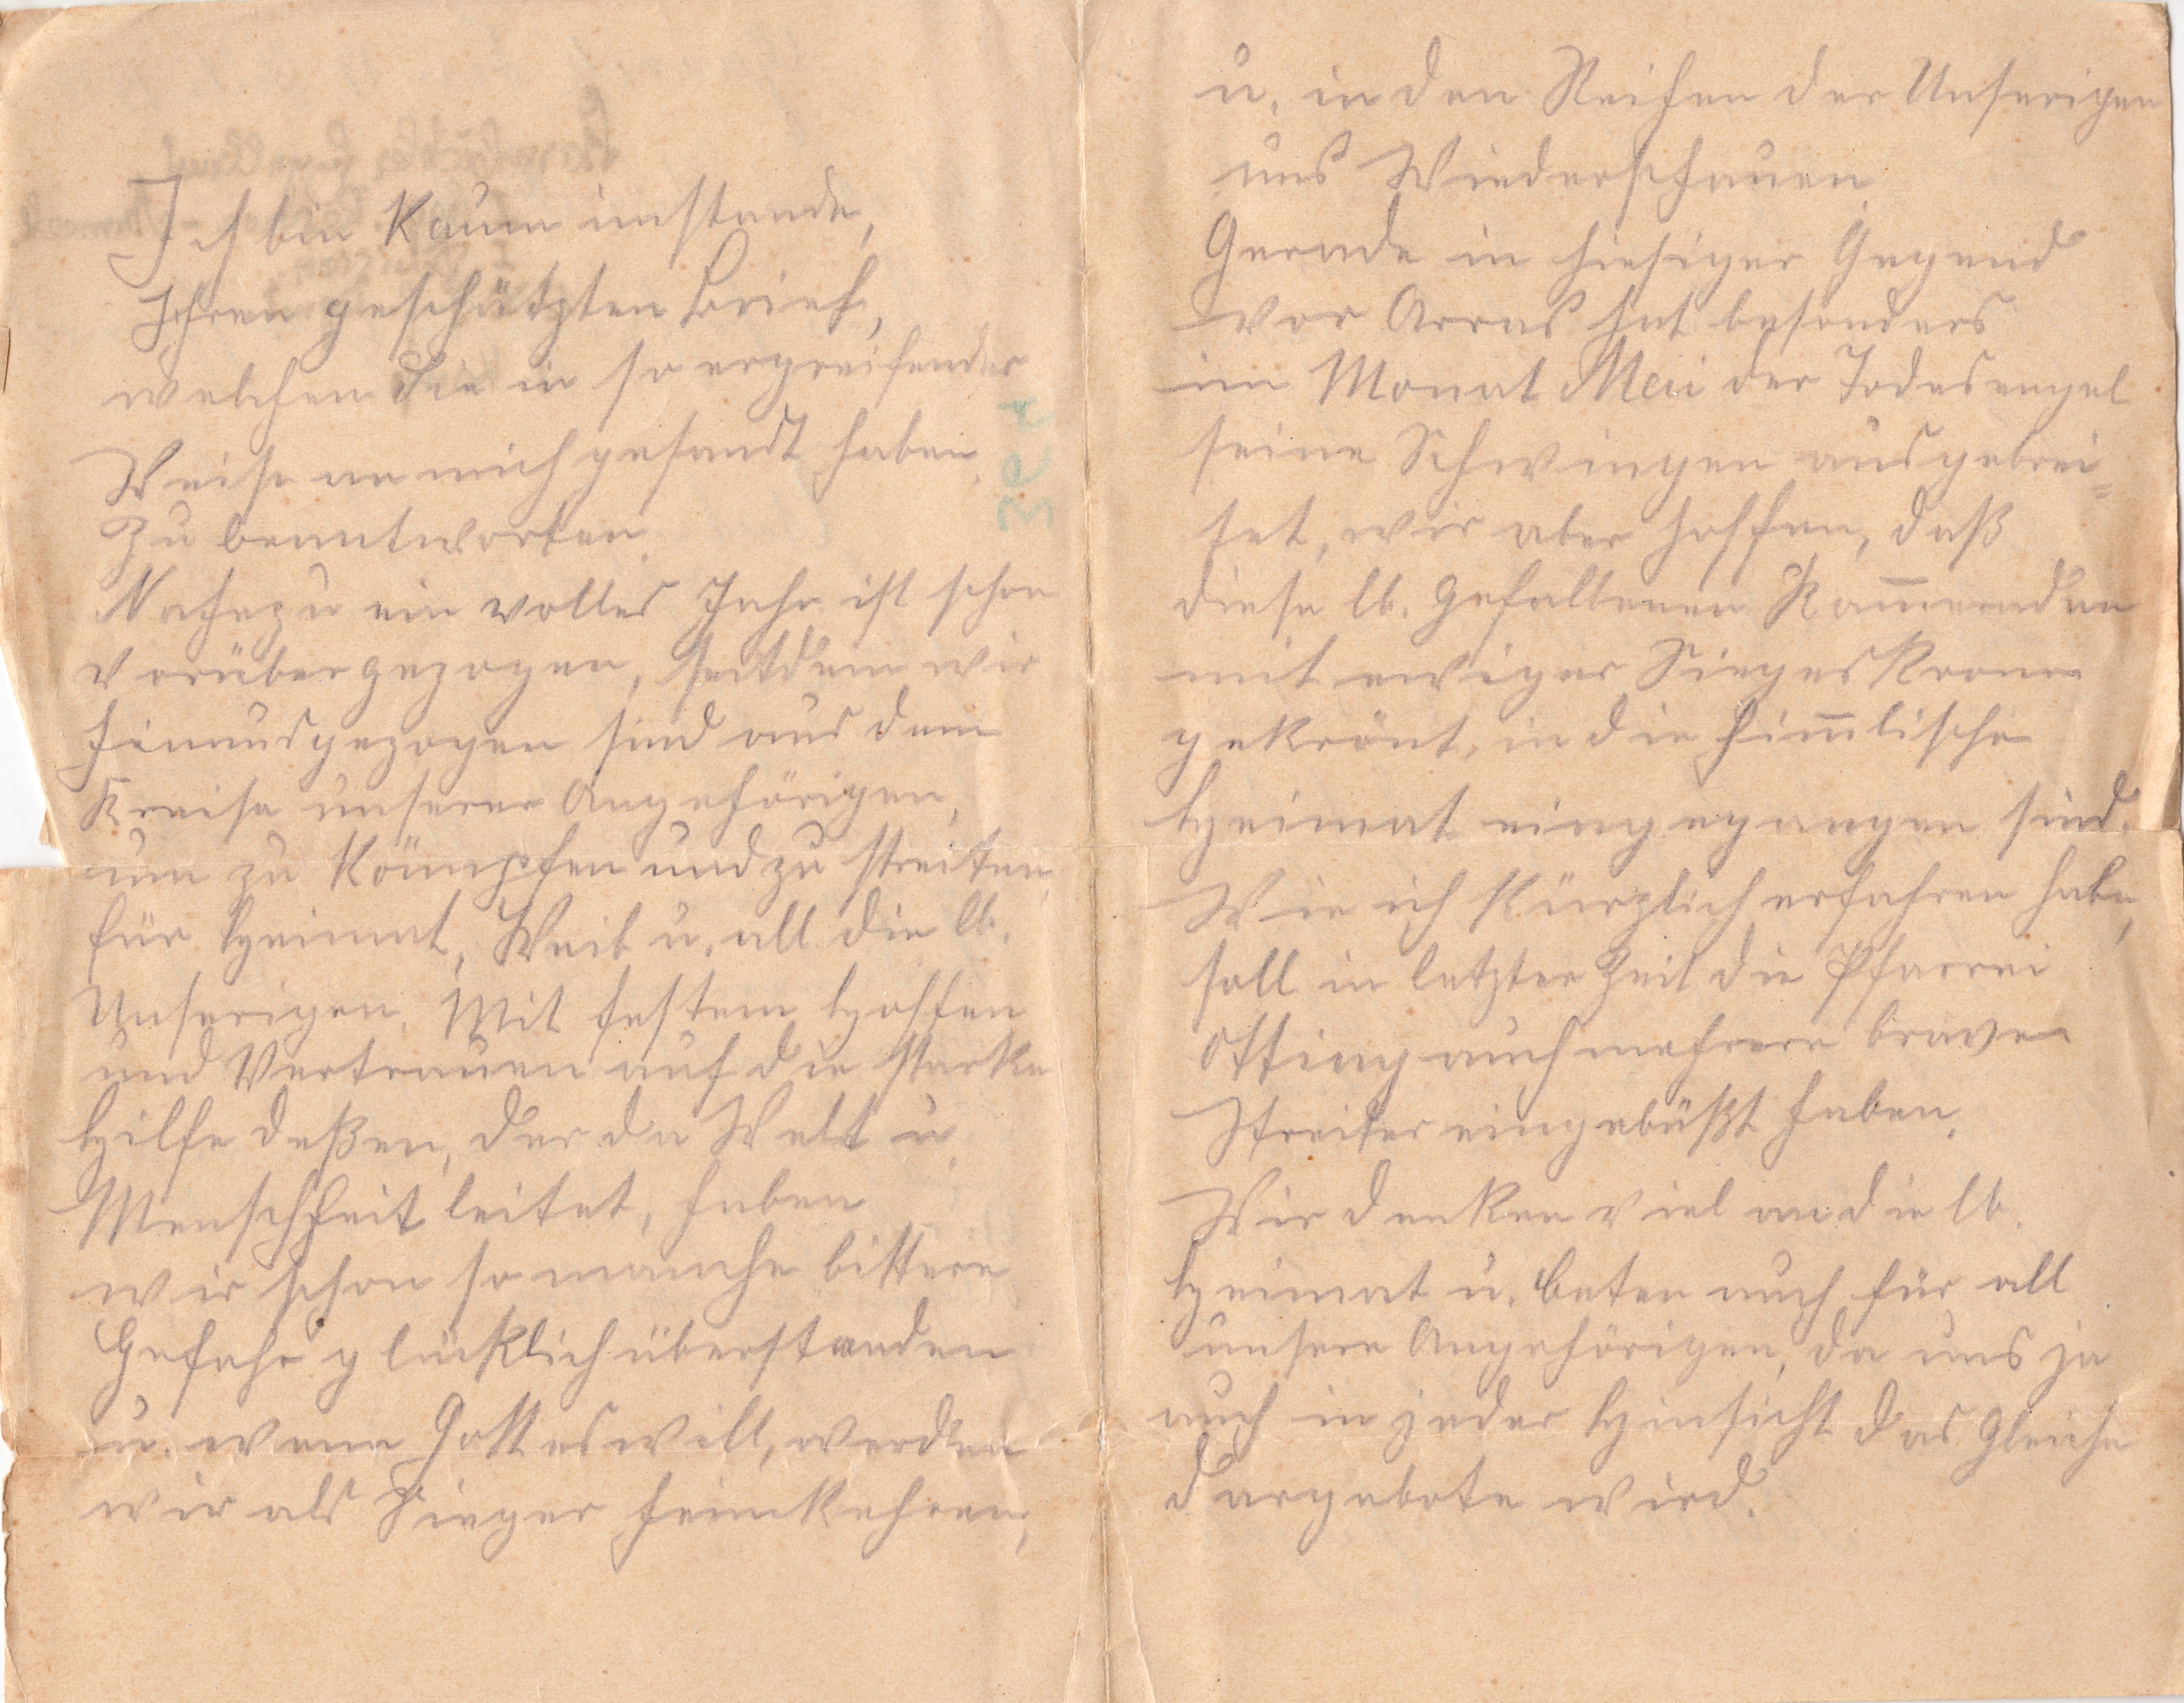 Ich bin kaum imstande,
Ihren geschätzten Brief,
welchen Sie in so ergreifender
Weise an mich gesandt haben,
zu beantworten.
Nahezu ein volles Jahr ist schon
vorübergezogen, seitdem wir
hinausgezogen sind aus dem
Kreise unserer Angehörigen,
um zu kämpfen und zu streiten,
für Heimat, Weib u. all die lb.
Unserigen. Mit festem Hoffen
und Vertrauen auf die starke
Hilfe deßen, der da Welt u.
Menschheit leitet, haben
wir schon so manche bittere
Gefahr glücklich überstanden
u. wenn Gott es will, werden
wir als Sieger heimkehren,
u. in den Reihen der Unserigen
uns Wiederschauen.
Gerade in hiesiger Gegend
vor Arras hat besonders
im Monat Mai der Todesengel
seine Schwingen ausgebrei=
tet, wir aber hoffen, daß
diese lb. gefallenen Kam̄eraden
mit ewiger Siegeskrone
gekrönt, in die him̄lische
Heimat eingegangen sind.
Wie ich kürzlich erfahren habe,
soll in letzter Zeit die Pfarrei
Otting auch mehrere brave
Streiter eingebüßt haben.
Wir denken viel an die lb.
Heimat u. beten auch für all
unsere Angehörigen, da uns ja
auch in jeder Hinsicht das Gleiche
dargebote wird.